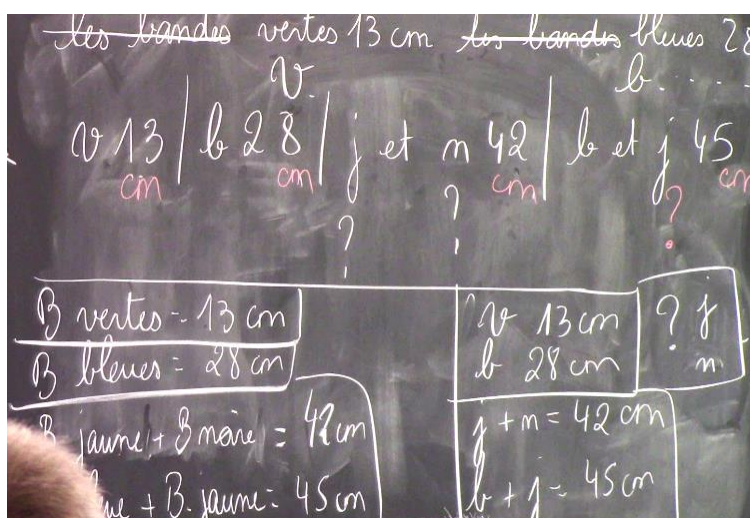 les bandes vertes 13 cm les bandes bleues 28
v. b.....
v 13 | b 28 | j et n 42 | b et j 45
cm cm cm cm
? ? ?
B vertes = 13 cm
B bleues = 28 cm
B jaune + B noire = 42 cm
+ B. jaune = 45 cm
v 13 cm
b 28 cm
? j
n
j + n = 42 cm
b + j = 45 cm